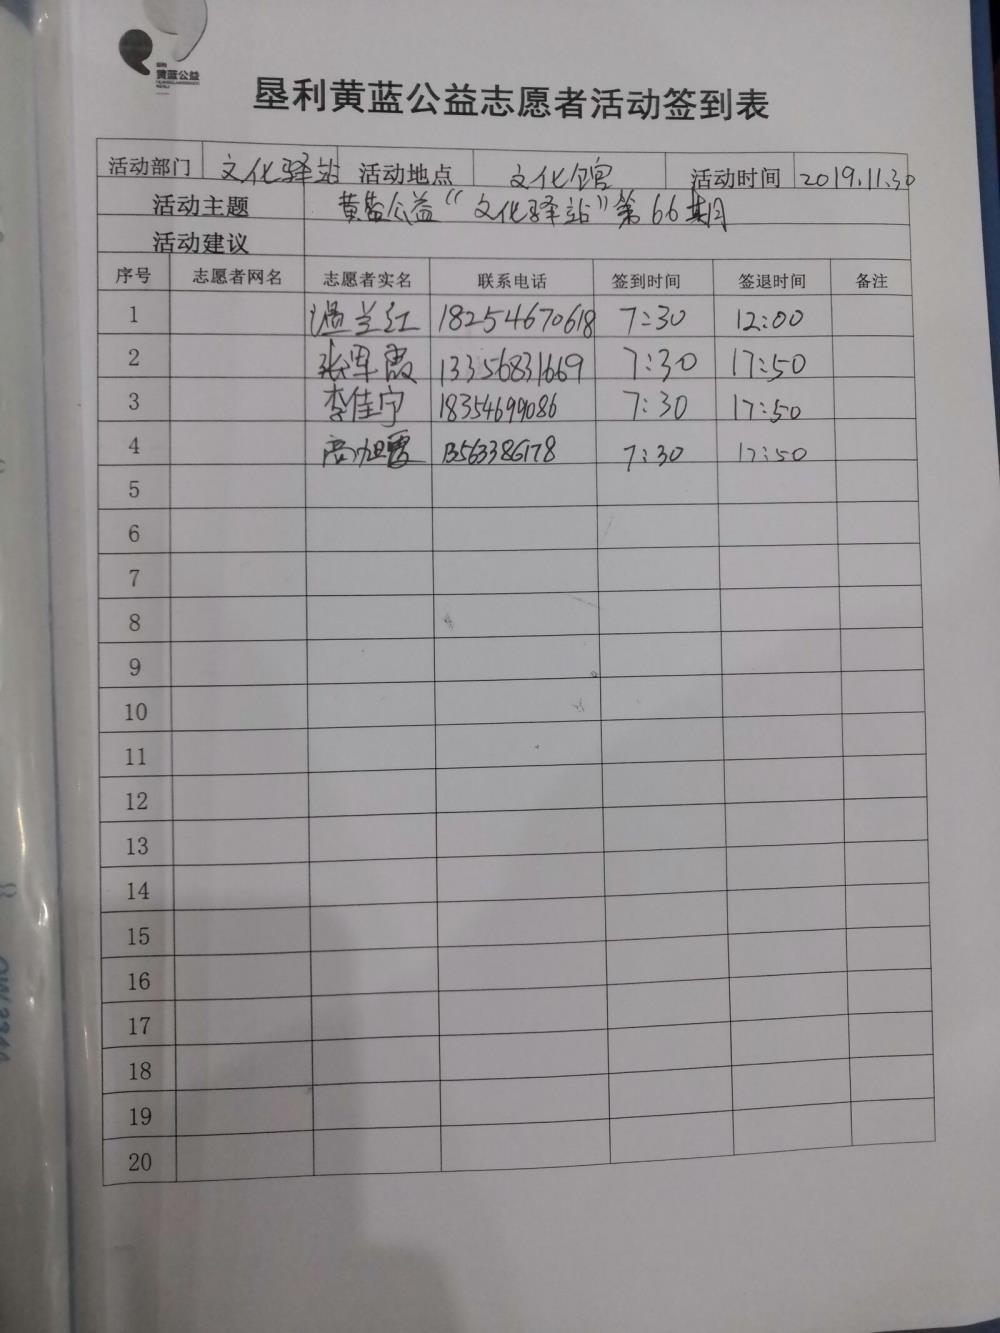 黄蓝公益
垦利黄蓝公益志愿者活动签到表
活动部门 文化驿站 活动地点 文化馆 活动时间 2019.11.30
活动主题 黄蓝公益“文化驿站”第66期
活动建议
序号 志愿者网名 志愿者实名 联系电话 签到时间 签退时间 备注
1 温兰红 18254670618 7:30 12:00
2 张军霞 13356831669 7:30 17:50
3 李佳宁 18354699086 7:30 17:50
4 13563386178 7:30 17:50
5
6
7
8
9
10
11
12
13
14
15
16
17
18
19
20